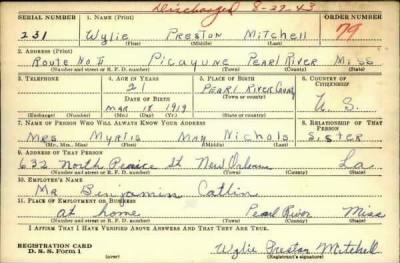 Discharged 8-27-43
SERIAL NUMBER 1. NAME (Print) ORDER NUMBER
231 Wylie Preston Mitchell 79
(First) (Middle) (Last)
2. ADDRESS (Print)
Route No II Picayune Pearl River Miss
(Number and street or R. F. D. number) (Town) (County) (State)
3. TELEPHONE 4. AGE IN YEARS 5. PLACE OF BIRTH 6. COUNTRY OF CITIZENSHIP
21 Pearl River County
DATE OF BIRTH (Town or county)
Mar 18 1919 U. S.
(Exchange) (Number) (Mo.) (Day) (Yr.) (State or country)
7. NAME OF PERSON WHO WILL ALWAYS KNOW YOUR ADDRESS 8. RELATIONSHIP OF THAT PERSON
Mrs Myrtis May Nichols Sister
(Mr., Mrs., Miss) (First) (Middle) (Last)
9. ADDRESS OF THAT PERSON
632 North St New Orleans La
(Number and street or R. F. D. number) (Town) (County) (State)
10. EMPLOYER'S NAME
Mr Benjamin Catlin
11. PLACE OF EMPLOYMENT OR BUSINESS
at home Pearl River Miss
(Number and street or R. F. D. number) (Town) (County) (State)
I AFFIRM THAT I HAVE VERIFIED ABOVE ANSWERS AND THAT THEY ARE TRUE.
REGISTRATION CARD
D. S. S. Form 1 Wylie Preston Mitchell
(Registrant's signature)